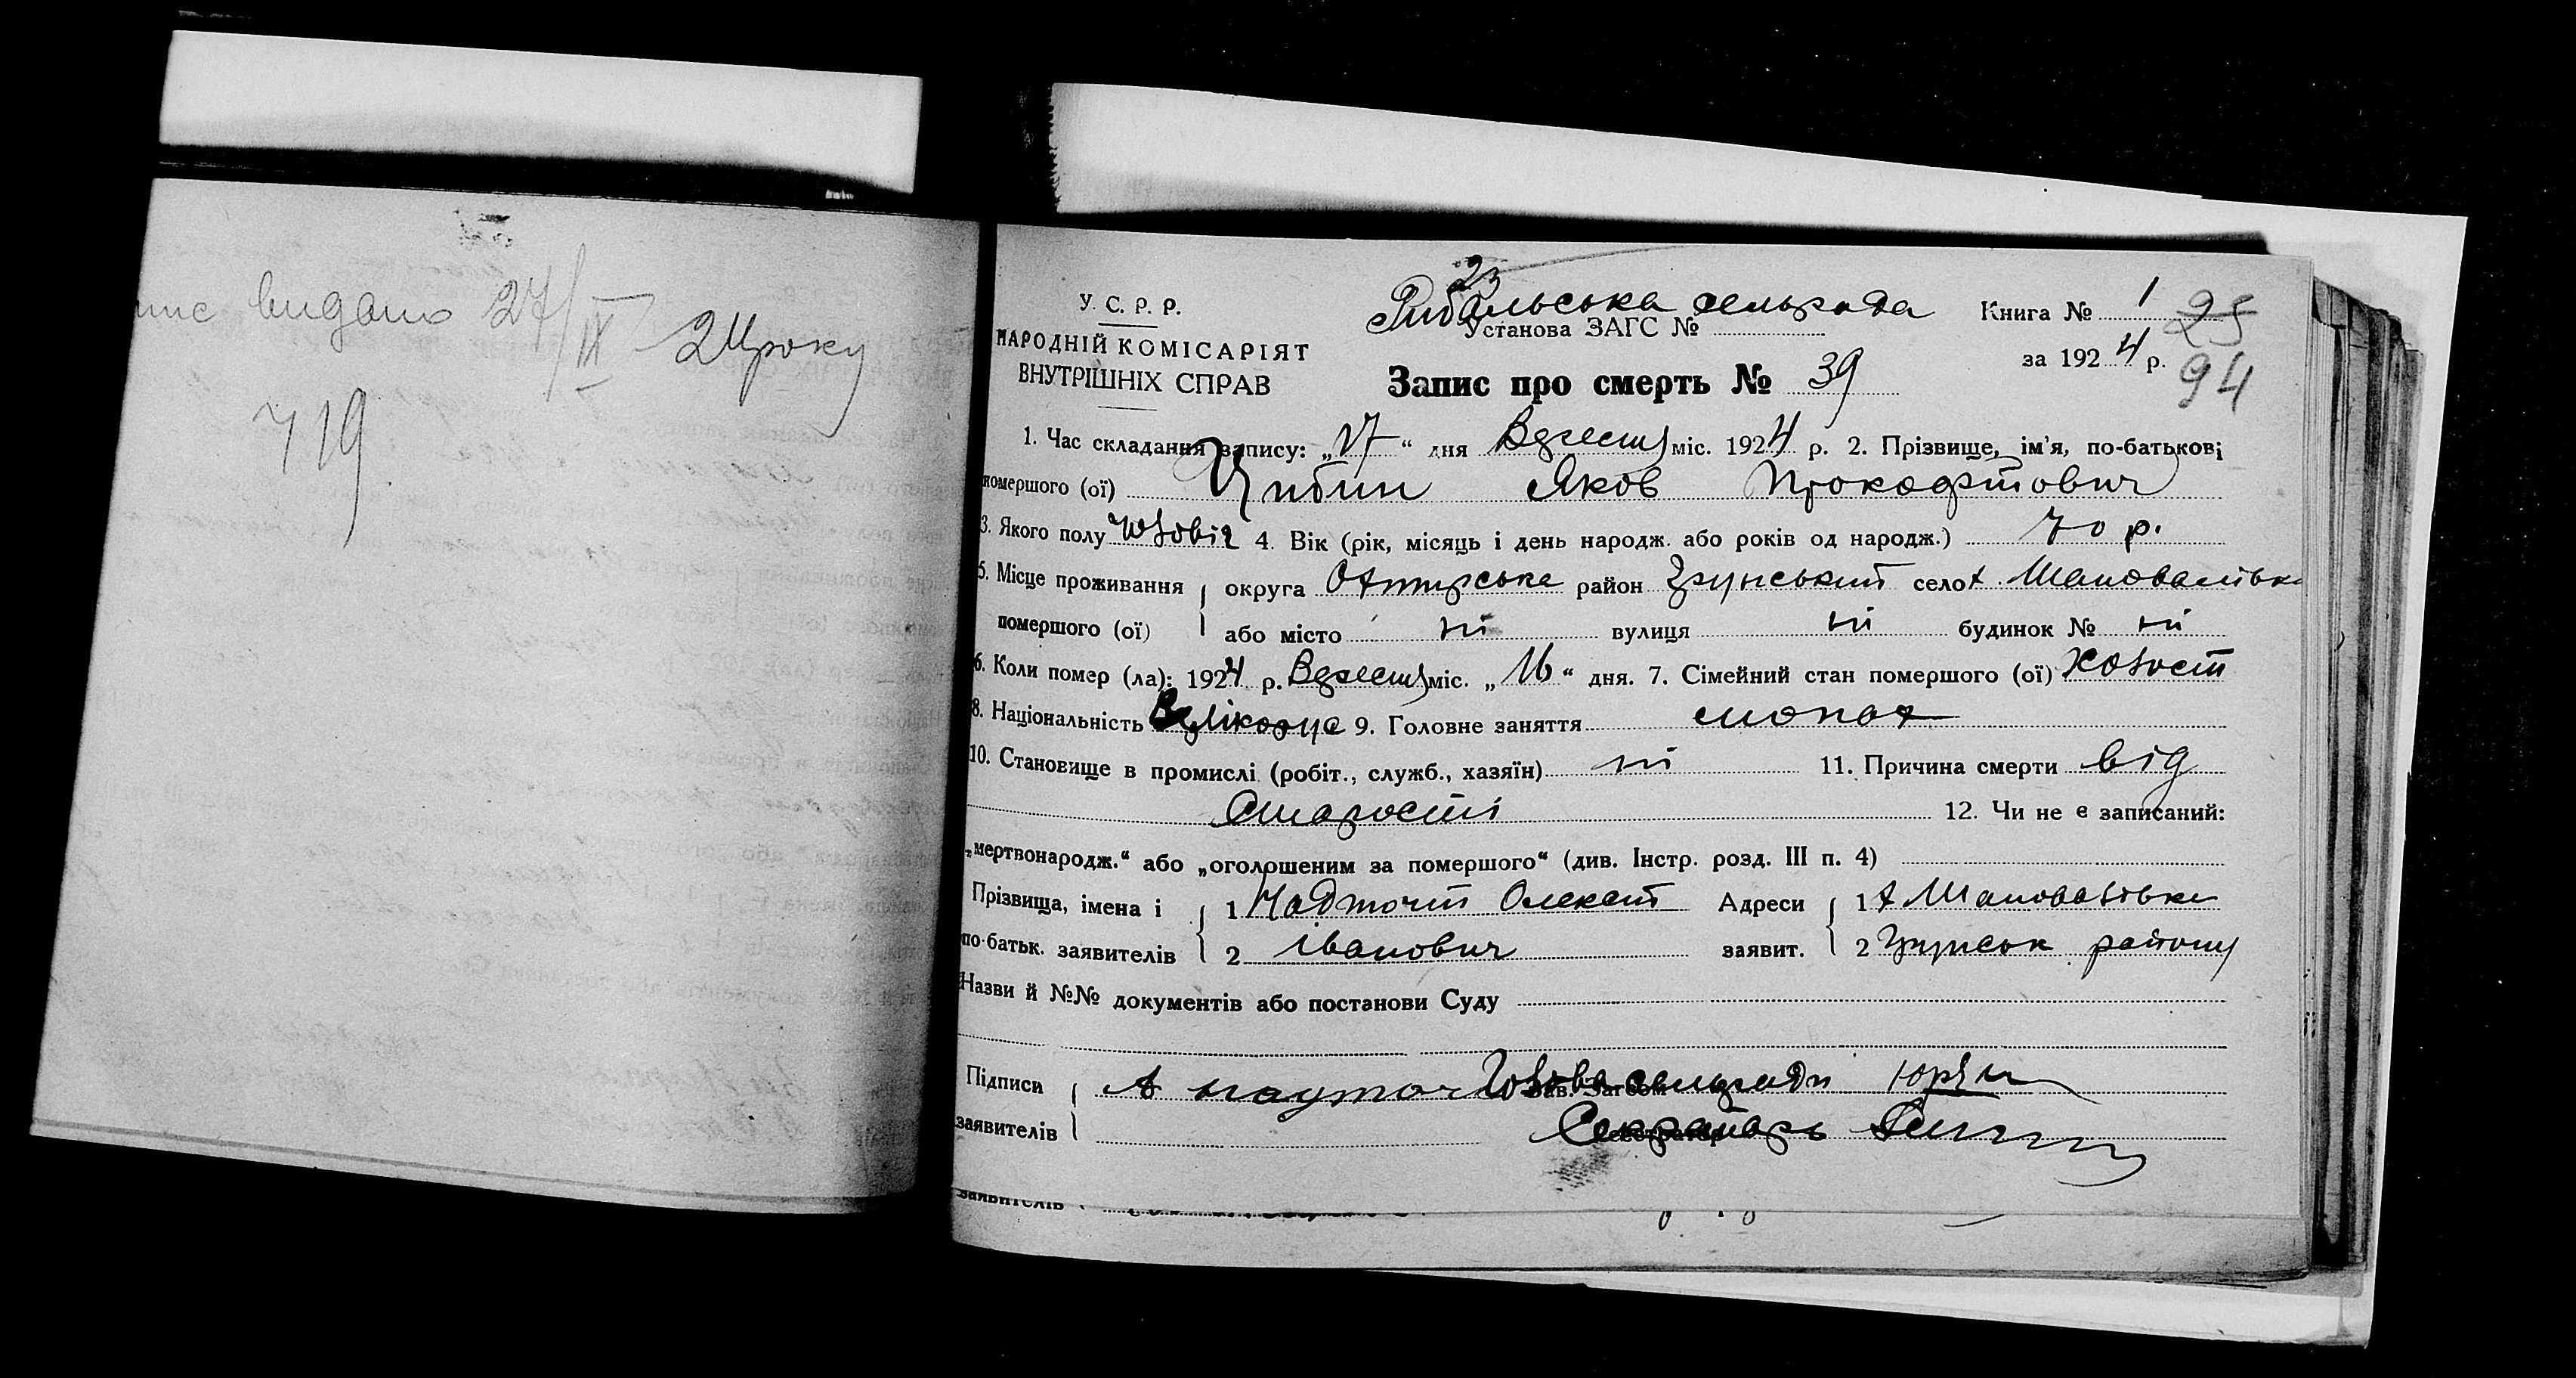 видано 27/IX 24 року
719
23
Рибальська сельрада
Книга № 1
25
У. С. Р. Р.
Установа ЗАГС №
НАРОДНІЙ КОМІСАРІЯТ
за 1924 р.
94
ВНУТРІШНІХ СПРАВ
Запис про смерть № 39
1. Час складання запису: „17“ дня Вересня міс. 1924 р. 2. Прізвище, ім'я, по-батькові
помершого (ої) Цибин Яков
3. Якого полу чоловіч 4. Вік (рік, місяць і день народж. або років од народж.) 70 р.
5. Місце проживання округа Охтирська район Грунський село х. Шаповалівка
помершого (ої) або місто ні вулиця ні будинок № ні
6. Коли помер (ла): 1924 р. Вересня міс. „16“ дня. 7. Сімейний стан помершого (ої) холост
8. Національність Велікорус 9. Головне заняття монах
10. Становище в промислі (робіт., служб., хазяїн) ні 11. Причина смерти від
старости 12. Чи не є записаний:
„мертвонародж.“ або „оголошеним за помершого“ (див. Інстр. розд. III п. 4)
Прізвища, імена і 1 Надточій Олексій Адреси 1 х Шаповалівка
по-батьк. заявителів 2 Іванович заявит. 2 Грунськ району
Назви й №№ документів або постанови Суду
Підписи А Зав. Загсом сельради
заявителів Секретарь
заявителів